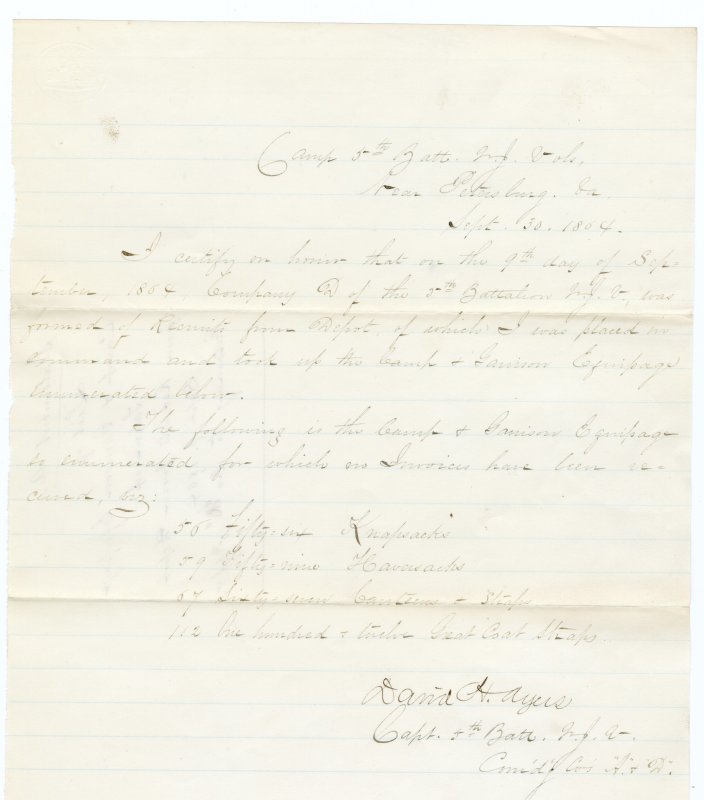 Camp 5th Batt. N.J. Vols.
Near Petersburg. Va.
Sept. 30. 1864.
I certify on honor that on the 9th day of Sep-
tember, 1864, Company D of the 5th Battalion N.J.V., was
formed of Recruits from Depot, of which I was placed in
command and took up the Camp & Garrison Equipage
enumerated below.
The following is the Camp & Garrison Equipage
so enumerated, for which no Invoices have been re-
ceived, viz:
56 Fifty-six Knapsacks
59 Fifty-nine Haversacks
67 Sixty-seven Canteens & Straps
112 One hundred & twelve Great Coat Straps.
David H. Ayers
Capt. 5th Batt. N.J.V.
Com'd'g Co's "A" & "D".